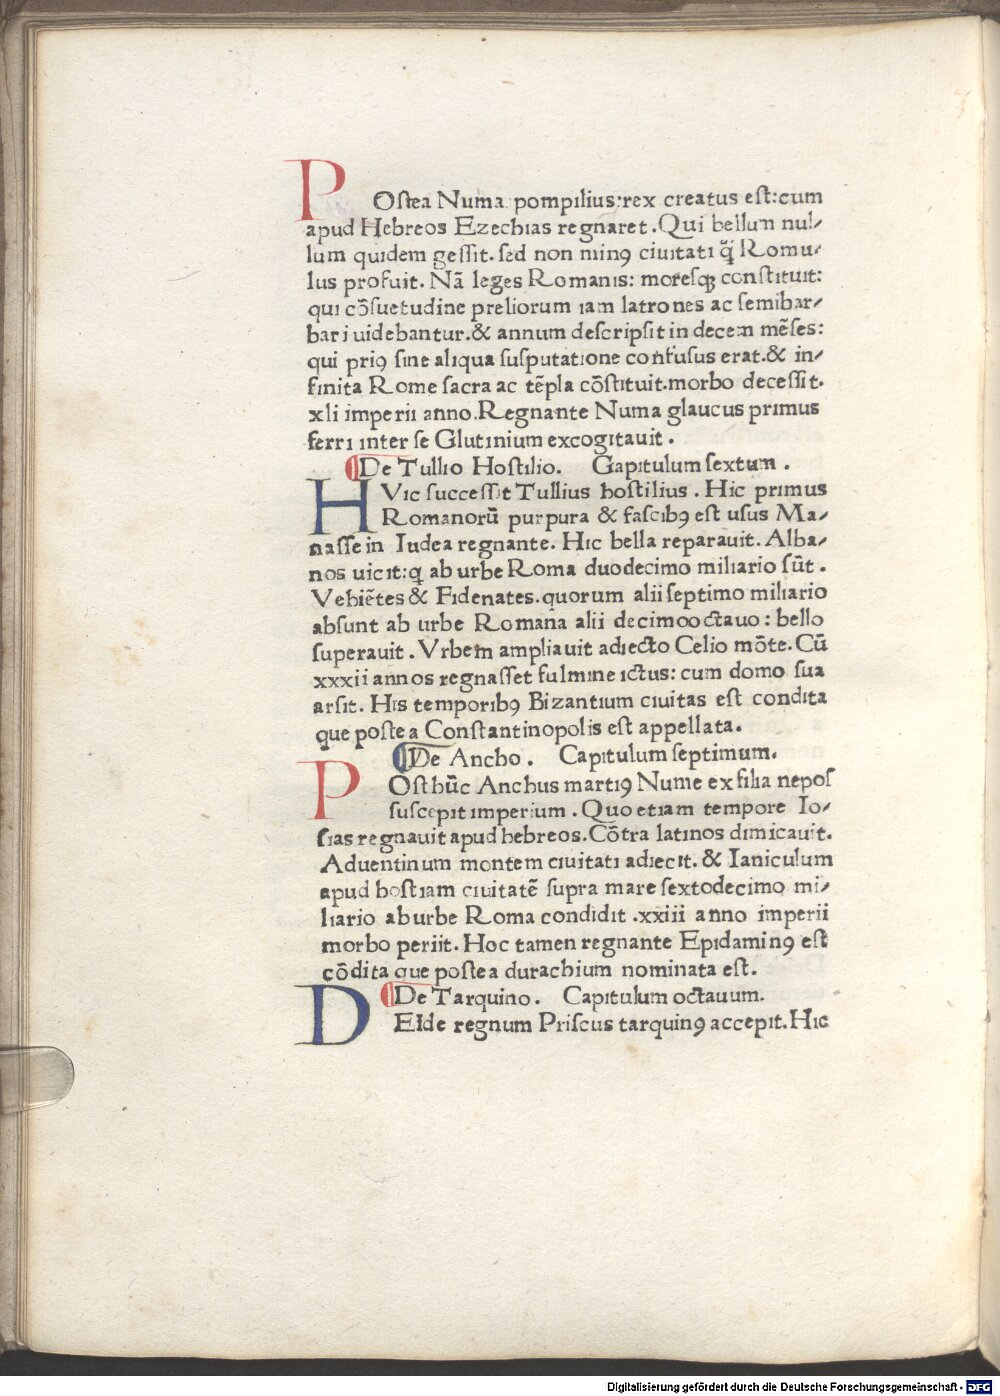 POſtea Numa pompilius:rex creatus eſt:cum
apud Hebreos Ezechias regnaret.Qui bellum nul⸗
lum quidem geſſit. ſed non minꝯ ciuitati q̃ Romu⸗
lus profuit. Nã leges Romanis: moreſqꝫ conſtituit:
qui cõſuetudine preliorum iam latrones ac ſemibar⸗
bari uidebantur.& annum deſcripſit in decem mẽſes:
qui priꝯ ſine aliqua ſuſputatione confuſus erat.& in⸗
finita Rome ſacra ac tẽpla cõſtituit.morbo deceſſit.
xli imperii anno.Regnante Numa glaucus primus
ferri inter ſe Glutinium excogitauit.
De Tullio Hoſtilio. Gapitulum ſextum.
HVic ſucceſſit Tullius hoſtilius. Hic primus
Romanorũ purpura & faſcibꝯ eſt uſus Ma⸗
naſſe in Iudea regnante. Hic bella reparauit. Alba⸗
nos uicit:q ab urbe Roma duodecimo miliario ſũt.
Vehiẽtes & Fidenates.quorum alii ſeptimo miliario
abſunt ab urbe Romana alii decimooctauo: bello
ſuperauit. Vrbem ampliauit adiecto Celio mõte. Cũ
xxxii annos regnaſſet fulmine ictus: cum domo ſua
arſit. His temporibꝯ Bizantium ciuitas eſt condita
que poſtea Conſtantinopolis eſt appellata.
De Ancho. Capitulum ſeptimum.
POſthũc Anchus martiꝯ Nume ex filia nepos
ſuſcepit imperium. Quo etiam tempore Io⸗
ſias regnauit apud hebreos. Cõtra latinos dimicauit.
Aduentinum montem ciuitati adiecit. & Ianiculum
apud hoſtiam ciuitatẽ ſupra mare ſextodecimo mi⸗
liario ab urbe Roma condidit.xxiii anno imperii
morbo periit. Hoc tamen regnante Epidaminꝯ eſt
cõdita que poſtea durachium nominata eſt.
De Tarquino. Capitulum octauum.
DEIde regnum Priſcus tarquinꝯ accepit. Hic
Digitalisierung gefördert durch die Deutsche Forschungsgemeinschaft - DFG